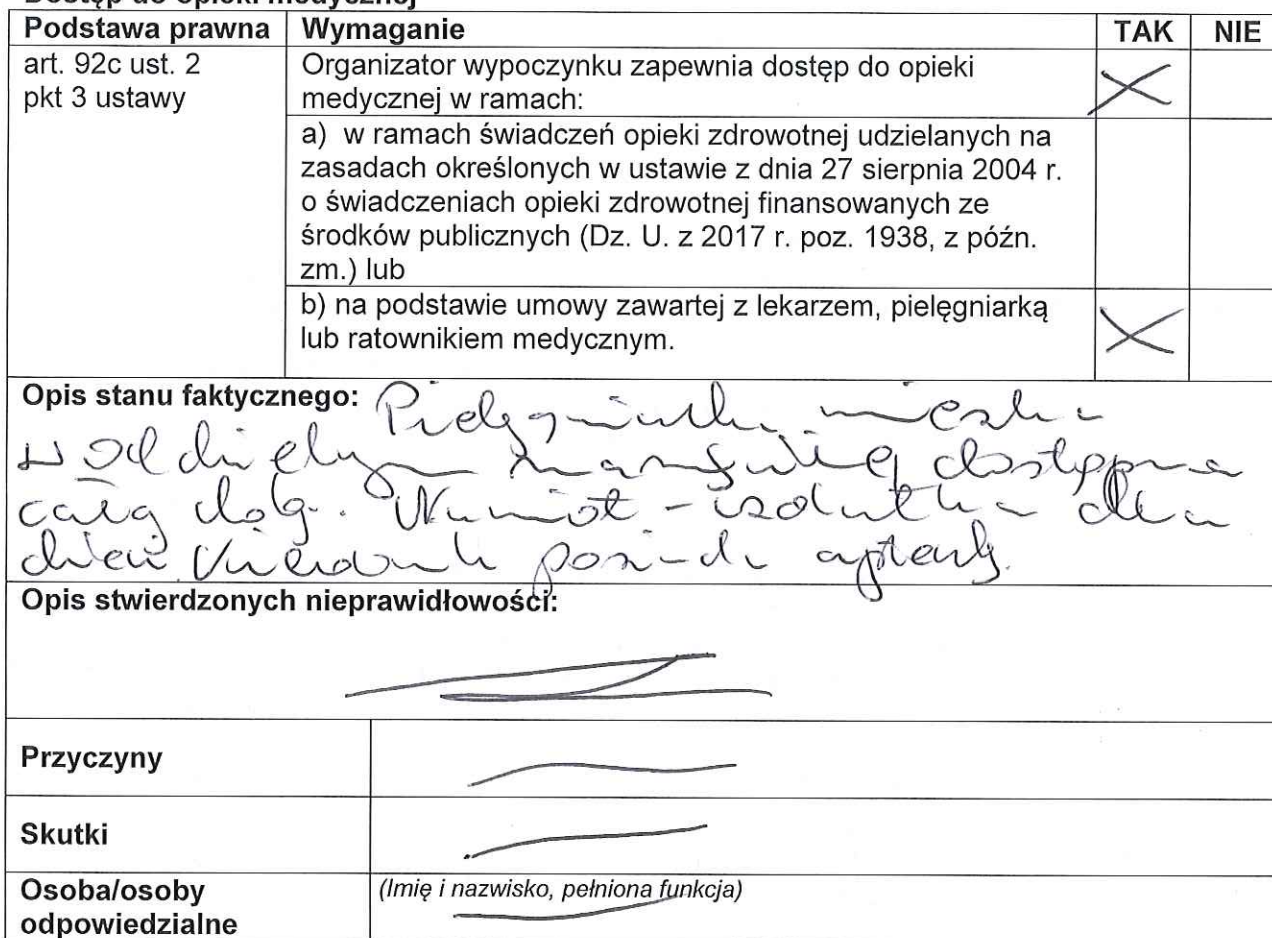 Dostęp do opieki medycznej
Podstawa prawna Wymaganie TAK NIE
art. 92c ust. 2
pkt 3 ustawy
Organizator wypoczynku zapewnia dostęp do opieki
medycznej w ramach:
a) w ramach świadczeń opieki zdrowotnej udzielanych na
zasadach określonych w ustawie z dnia 27 sierpnia 2004 r.
o świadczeniach opieki zdrowotnej finansowanych ze
środków publicznych (Dz. U. z 2017 r. poz. 1938, z późn.
zm.) lub
b) na podstawie umowy zawartej z lekarzem, pielęgniarką
lub ratownikiem medycznym.
Opis stanu faktycznego: Pielęgniarka mieszka
w oddzielnym dostępna
całą dobę. Namiot - izolatka dla
dzieci. Kierownik posiada apteczkę.
Opis stwierdzonych nieprawidłowości:
Przyczyny
Skutki
Osoba/osoby
odpowiedzialne
(Imię i nazwisko, pełniona funkcja)